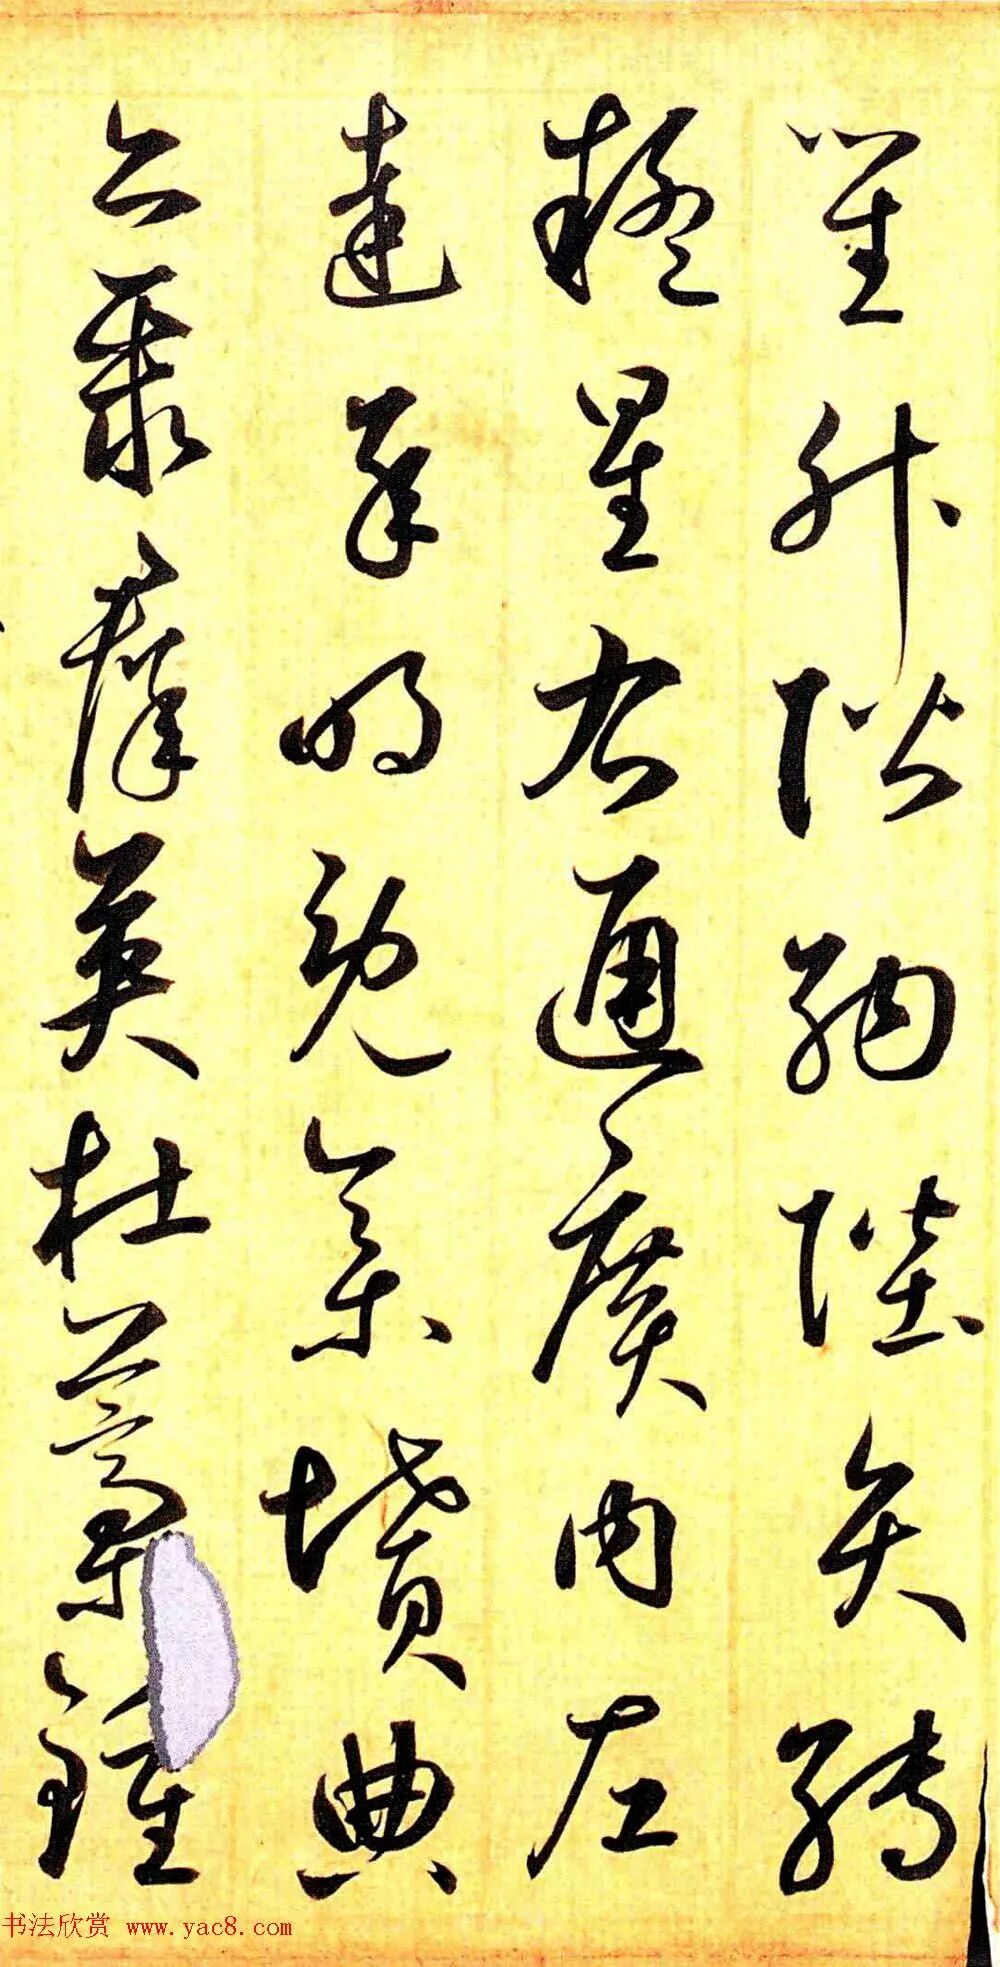 笙升階納陛弁轉
疑星右通廣內左
達承明既集墳典
亦聚群英杜藁鍾
书法欣赏 www.yac8.com